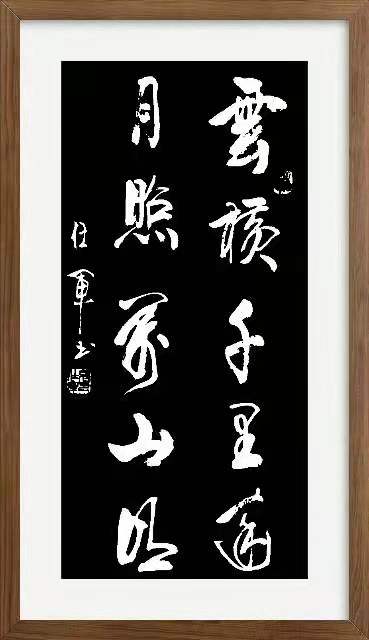 雲橫千里遍
月照萬山明
任軍书